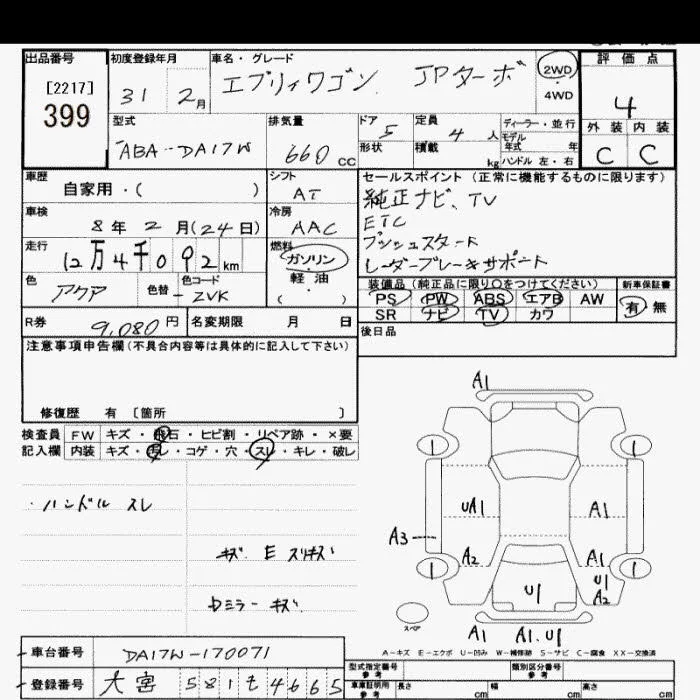 出品番号
[2217]
399
初度登録年月
31 2月
車名・グレード
エブリィワゴン JPターボ
2WD
4WD
評価点
4
外装 内装
C C
型式
ABA-DA17W
排気量
660 CC
ドア 5
形状
定員 4 人
積載 kg
ディーラー・並行
モデル年式 年
ハンドル 左・右
車歴
自家用・( )
シフト
AT
車検
8年2月(24日)
冷房
AAC
走行
12万4千092km
燃料
ガソリン・
軽油
( )
色
アクア
色替
色コード
-ZVK
セールスポイント(正常に機能するものに限ります)
純正ナビ、TV
ETC
プッシュスタート
レーダーブレーキサポート
装備品(純正品に限り○をつけてください)
PS PW ABS エアB AW
SR ナビ TV カワ
新車保証書
有 無
R券 9,080円
名変期限 月 日
後日品
注意事項申告欄(不具合内容等は具体的に記入して下さい)
修復歴 有 [箇所 ]
検査員 FW キズ・飛石・ヒビ割・リペア跡・×要
記入欄 内装 キズ・汚レ・コゲ・穴・スレ・キレ・破レ
・ハンドル スレ
キズ E スリキズ
Dミラー キズ
A1
1 1
UA1 A1
A3
A2 A1
1 1
U1
A2
U1
スペア
A1 A1.U1
A-キズ E-エクボ U-凹み W-補修跡 S-サビ C-腐食 XX-交換済
車台番号 DA17W-170071
登録番号 大宮 581 そ 4665
型式指定番号
参考
類別区分番号
参考
車庫証明用
参考
長さ cm
幅 cm
高さ cm